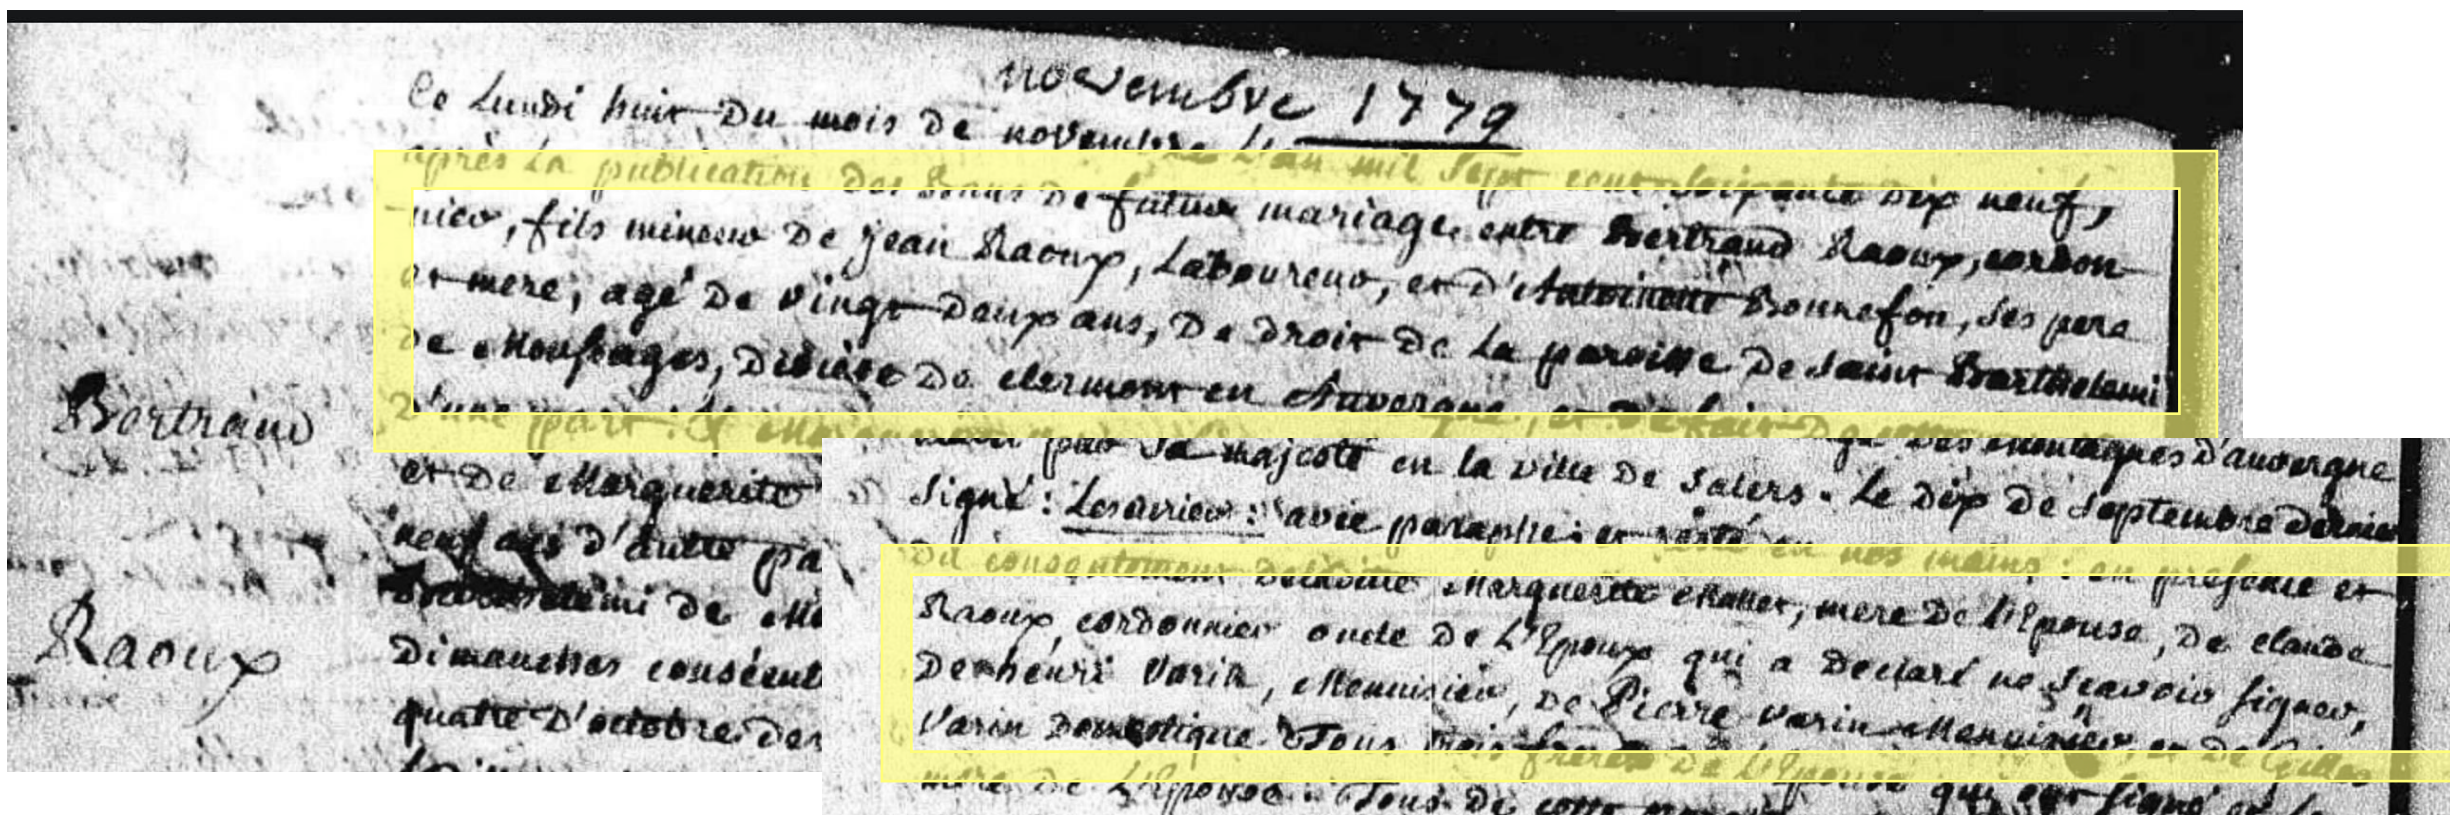 novembre 1779
Ce Lundi huit Du mois De novembre L'an mil Sept cent soixante Dix neuf,
après La publication Des Bans De futur mariage entre Bertrand Raoux, cordon-
nier, fils mineur De jean Raoux, Laboureur, et D'Antoinette Bonnefon, ses pere
et mere, agé De vingt Deux ans, De droit De La paroisse De saint Barthelemi
De Moussages, Diocèse De clermont en Auvergne, et De fait De
D'une part: et
Bertrand
et De Marguerite
neuf ans d'autre pa
Barthelemi de Mo
Raoux
Dimanches consécut
quatre D'octobre der
par Sa majesté en la ville De Salers. Le Dix De Septembre dernier
Des Montagnes D'auvergne
signé: Lesvrier: avec paraphe: et resté en nos mains: en présence et
Du consentement De Marguerite Mallet, mere De L'Epouse, De claude
Raoux, cordonnier oncle De L'Epoux qui a Declaré ne scavoir signer,
De henri Varin, Menuisier, De Pierre Varin Menuisier, et De Gilles
Varin Domestique. Tous trois freres De L'Epouse qui ont signé et la
mere De L'Epouse. Tous De cette